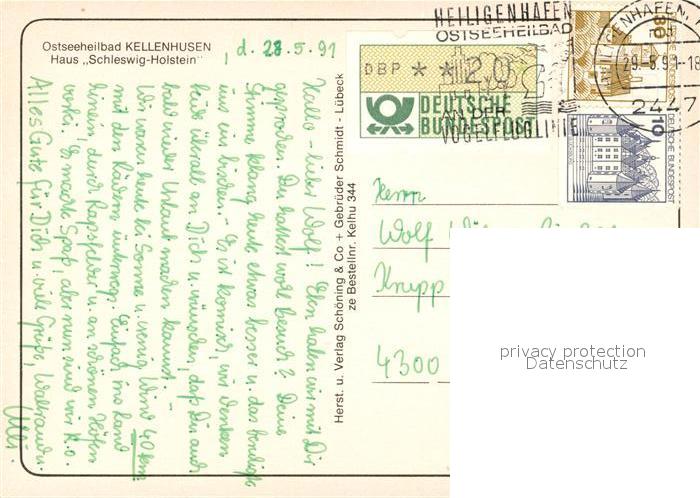 Ostseeheilbad KELLENHUSEN
Haus „Schleswig-Holstein"
, d. 28.5.91
Hallo - lieber Wolf! Eben haben wir mit Dir
gesprochen. Du hattest wohl Besuch? Deine
Stimme klang heute etwas besser u. das beruhigte
uns ein bisschen. - Es ist komisch, wir denken
hier überall an Dich u. wünschen, daß Du auch
bald wieder Urlaub machen kannst. -
Wir waren heute bei Sonne u. wenig Wind 40 km
mit den Rädern unterwegs. Einfach ins Land
hinein durch Rapsfelder u. an schönen Höfen
vorbei. Es machte Spaß, aber nun sind wir K.o.
Alles Gute für Dich u. viele Grüße, Waltraud u.
Ulli.
Herst. u. Verlag Schöning & Co + Gebrüder Schmidt - Lübeck
ze Bestellnr. Kelhu 344
HEILIGENHAFEN
OSTSEEHEILBAD
AN DER
VOGELFLUGLINIE
DBP * * 20
DEUTSCHE
BUNDESPOST
80
29.-5.91-18
2447
10
DEUTSCHE BUNDESPOST
Herrn
Wolf
Krupp
4300
privacy protection
Datenschutz